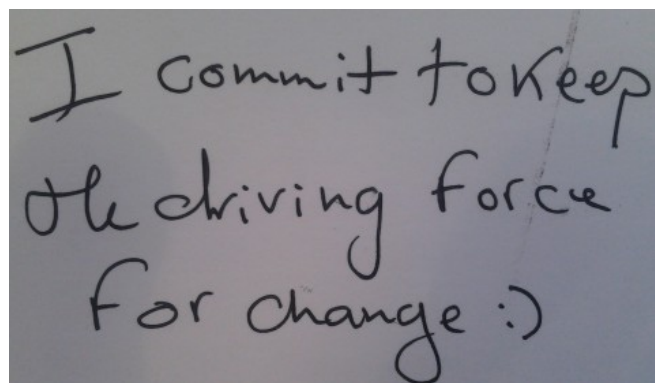 I commit to keep
the driving force
for change :)